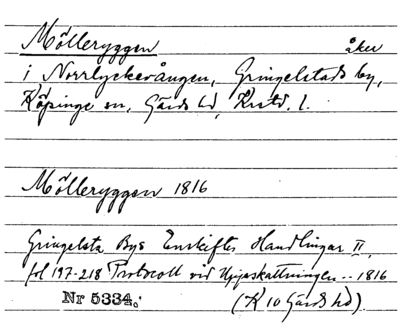 Mölleryggen åker
i Norrlyckevången, Gringelstads by,
Köpinge sn, Gärds hd, Krstd. l.
Mölleryggen 1816
Gringelsta Bys Enskiftes Handlingar II,
fol 197-218 Protocoll vid Uppskattningen -- 1816
Nr 5334. (K 10 Gärds hd).